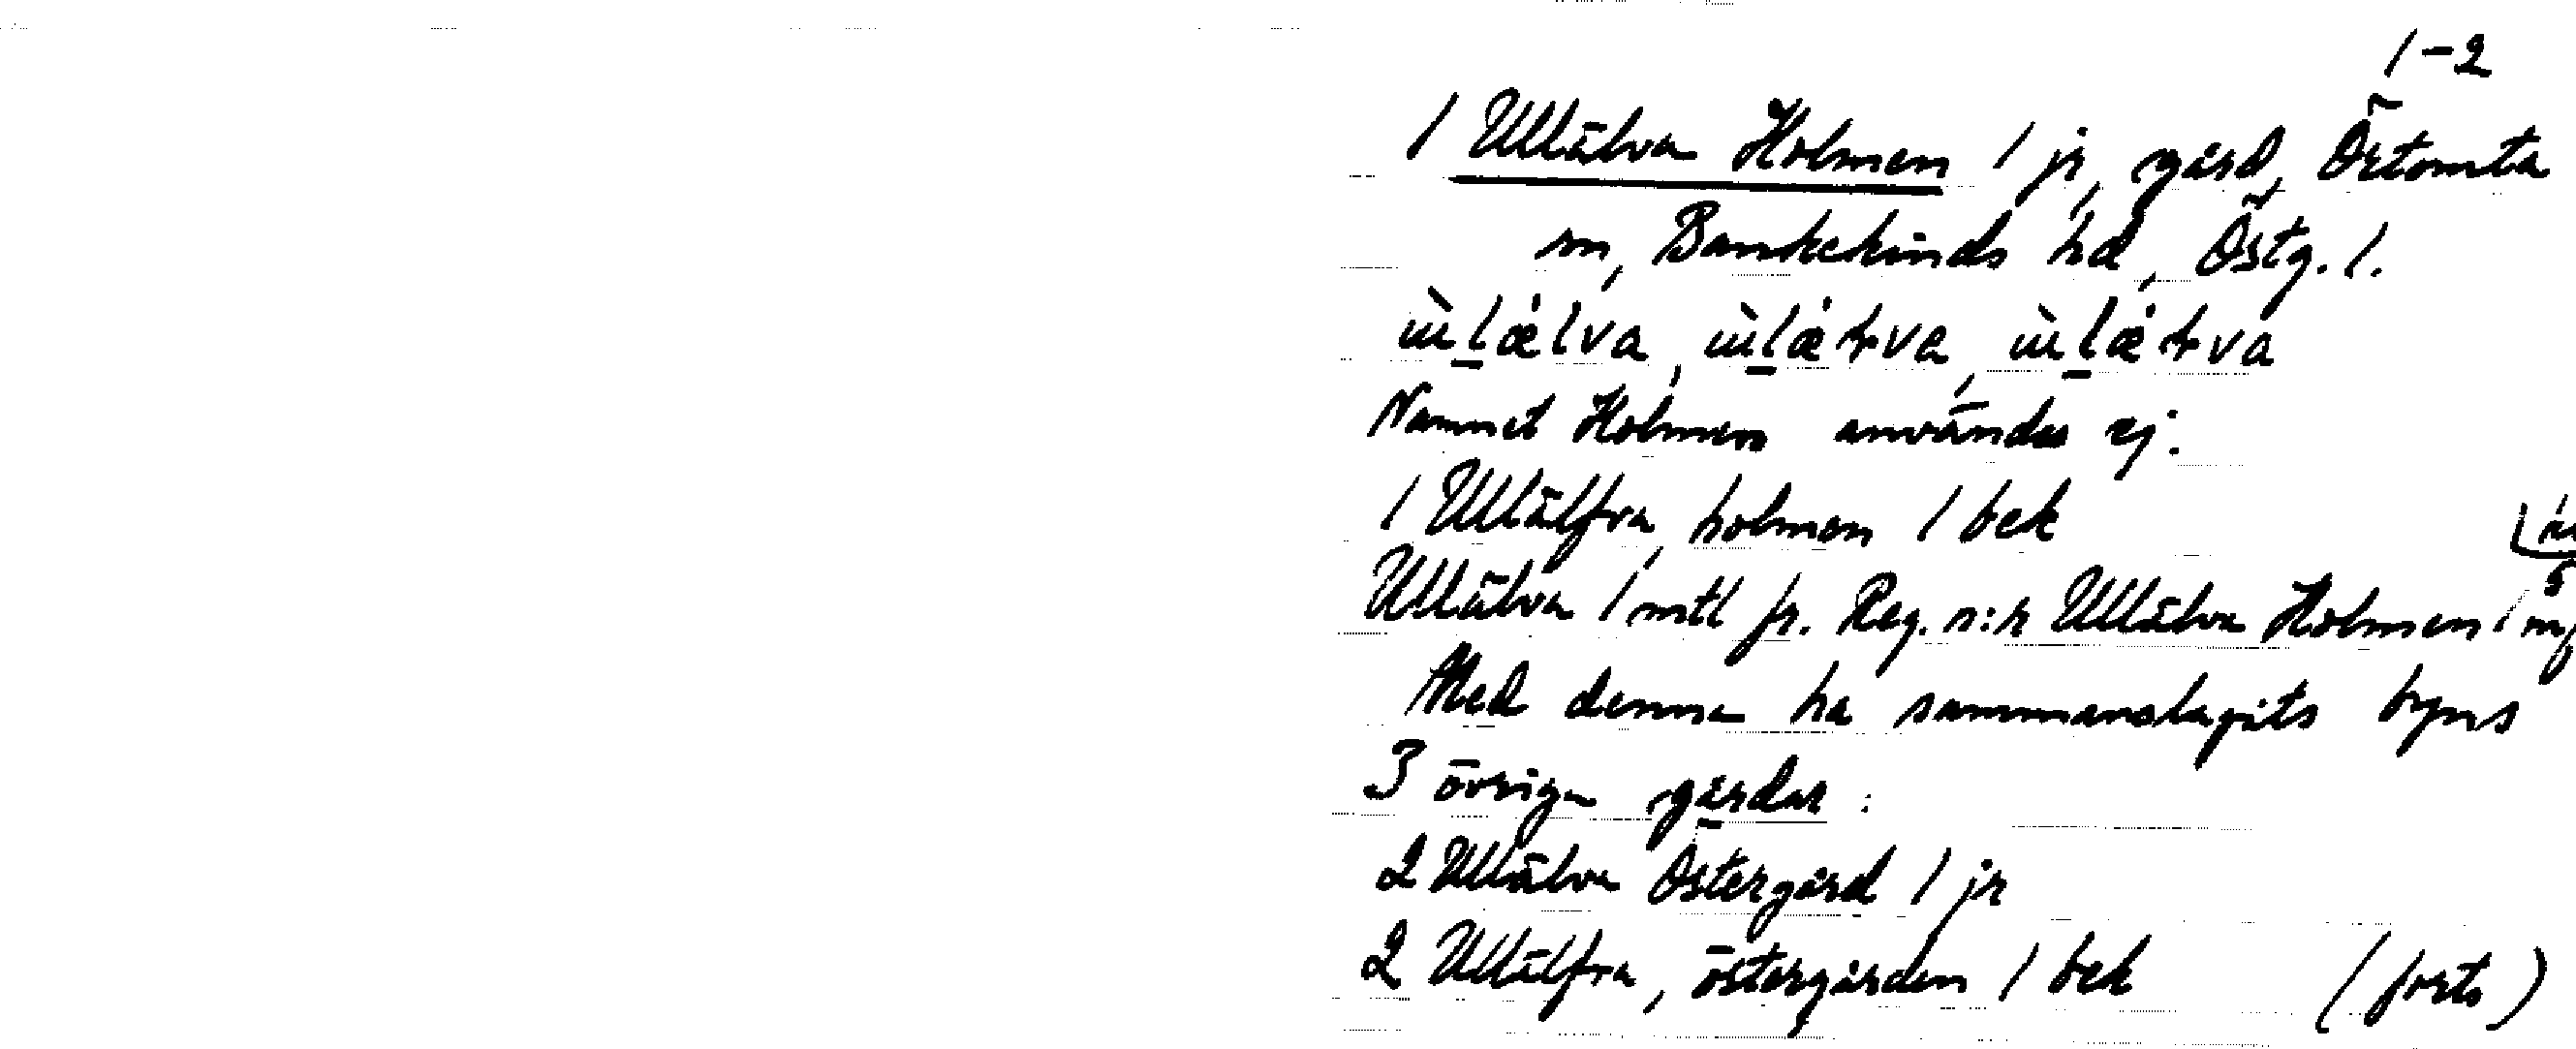 1-2
1 Ullälva Holmen 1 jr, gård, Örtomta
sn, Bankekinds hd, Östg. l.
ùlǽlva, ùlǽłva, ùlǽłva
Namnet Holmen användes ej.
1 Ullälfva, holmen 1 bek
Ullälva 1 mtl jr. Reg. n:r Ullälva Holmen 1
Med denna ha sammanslagits byns
3 övriga gårdar:
2 Ullälva Östergård 1 jr
2 Ullälfva, östergården 1 bek (forts)